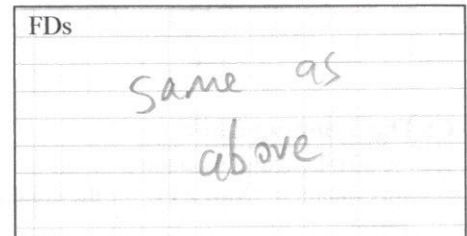 FDs
same as
above